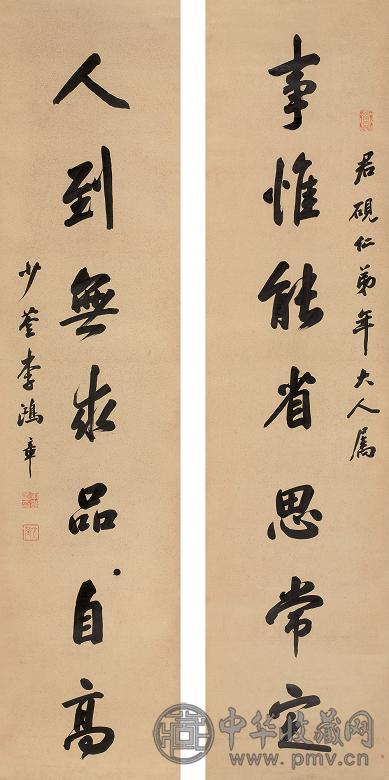 君硯仁弟年大人屬
事惟能省思常定
人到無求品自高
少荃李鴻章
中华收藏网
www.pmv.cn